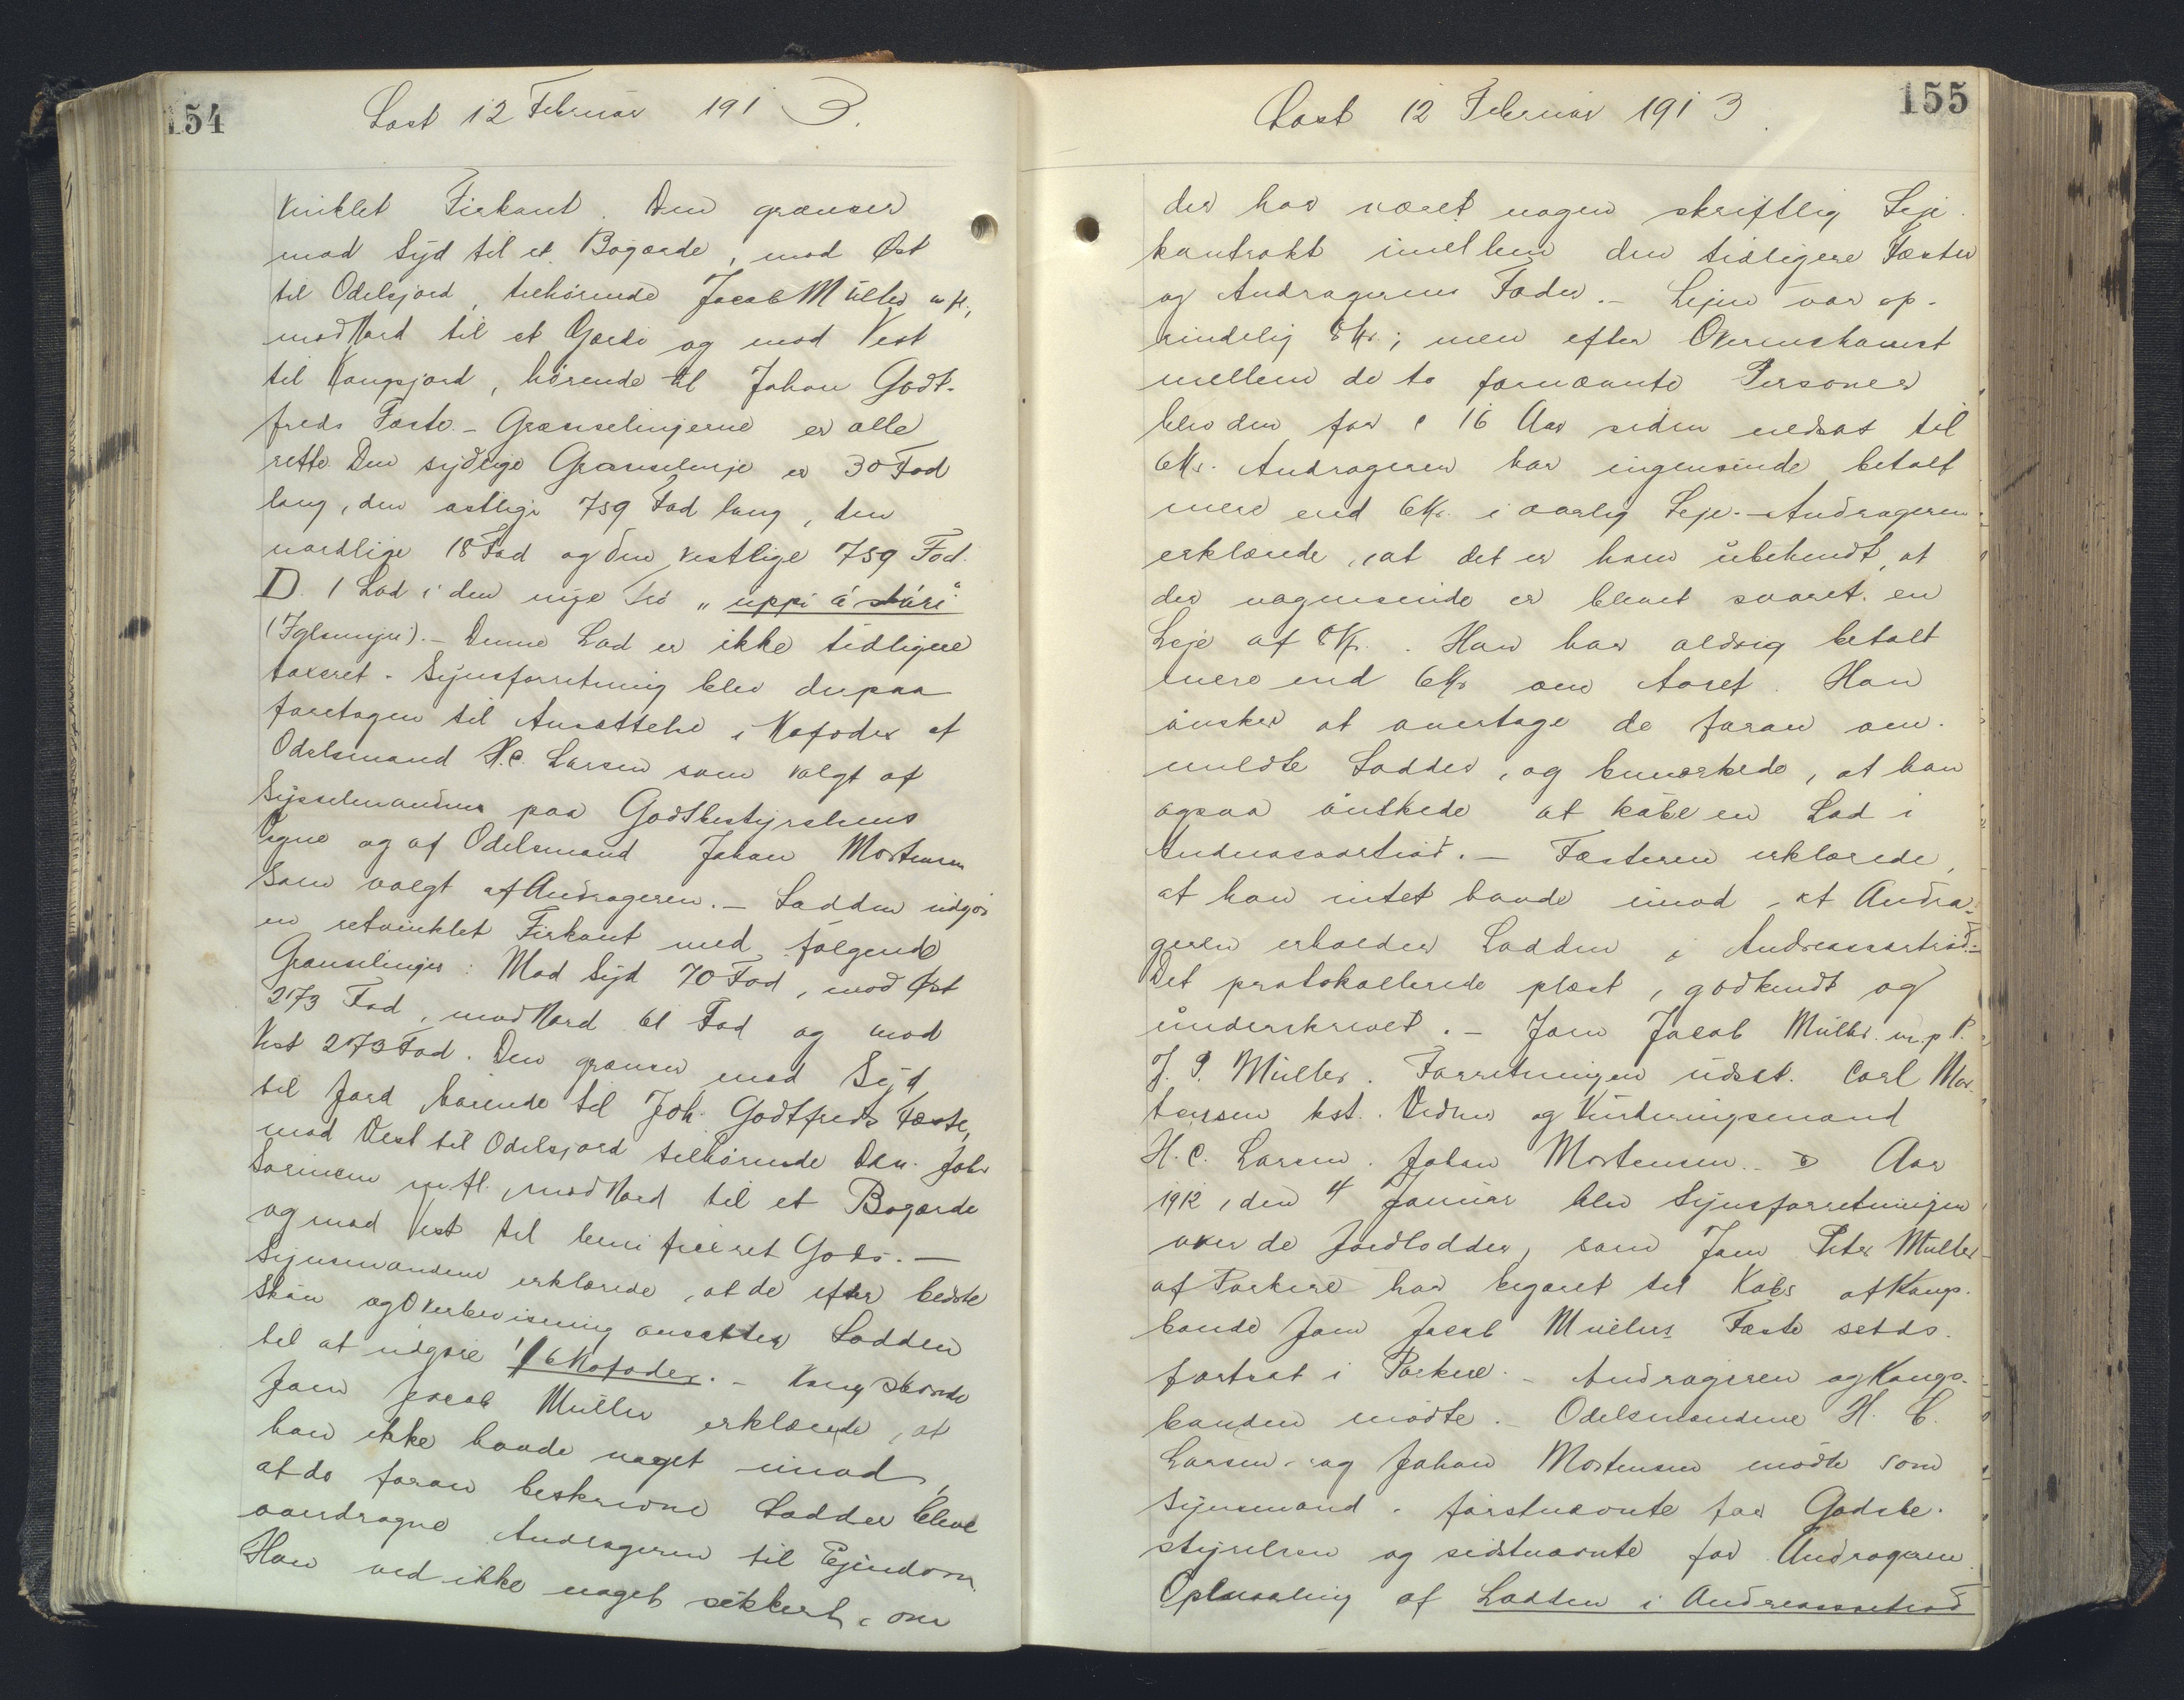 154
Læst 12 Februar 1913.
vinklet Firkant. Den grænser
mod Syd til et Bøgærde, mod Øst
til Odelsjord, tilhørende Jacob Müller m fl.,
mod Nord til et Gærde og mod Vest
til Kongsjord, hørende til Johan Godt-
freds Fæste. - Grænselinjerne er alle
rette. Den sydlige Grænselinje er 30 Fod
lang, den østlige 759 Fod lang, den
nordlige 18 Fod og den vestlige 759 Fod.
D. 1 Lod i den nye Trö „uppi á
- Denne Lod er ikke tidligere
taxeret. Synsforretning blev derpaa
foretagen til Ansættelse i Kofoder af
Odelsmand H.C. Larsen som valgt af
Sysselmanden paa Godsbestyrelsens
Vegne og af Odelsmand Johan Mortensen
som valgt af Andrageren. - Lodden udgør
en retvinklet Firkant med følgende
Grænselinjer: Mod Syd 70 Fod, mod Øst
273 Fod, mod Nord 61 Fod og mod
Vest 273 Fod. Den grænser mod Syd
til Jord hørende til Joh. Godtfreds Fæste,
mod Vest til Odelsjord tilhørende Dan. Joh.
m.fl. mod Nord til et Bøgærde
og mod Vest til beneficeret Gods. -
Synsmændene erklærede, at de efter bedste
Skøn og Overbevisning ansætter Lodden
til at udgøre 1/6 Kofoder. - Kongsbonde
Joen Jacob Müller erklærede, at
han ikke havde noget imod,
at de foran beskrevne Lodder bleve
overdragne Andrageren til Ejendom.
Han ved ikke noget sikkert, om
155
Læst 12 Februar 1913.
der har været nogen skriftlig Leje-
kontrakt imellem den tidligere Fæster
og Andragerens Fader. - Lejen var op-
rindelig 8 Kr.; men efter Overenskomst
mellem de to fornævnte Personer
blev den for c 16 Aar siden nedsat til
6 Kr. Andrageren har ingensinde betalt
mere end 6 Kr. i aarlig Leje. - Andrageren
erklærede, at det er ham ubekendt, at
der nogensinde er blevet svaret en
Leje af 8 Kr. . Han har aldrig betalt
mere end 6 Kr om Aaret. Han
ønsker at overtage de foran om-
meldte Lodder, og bemærkede, at han
ogsaa ønskede at købe en Lod i
Andreasartrød. - Fæsteren erklærede,
at han intet havde imod, at Andra-
geren erholder Lodden i Andreasartrød. -
Det protokollerede oplæst, godkendt og
underskrevet. - Joen Jacob Müller m. p. P.
J. P. Müller. Forretningen udsat. Carl Mor-
tensen kst. Vidner og Vurderingsmænd
H.C. Larsen. Johan Mortensen. - Aar
1912, den 4 Januar blev Synsforretningen
over de Jordlodder, som Joen Peter Müller
af Porkere har begæret til Købs af Kongs-
bonde Joen Jacob Müllers Fæste
fortsat i Porkere. - Andrageren og Kongs-
bonden mødte. - Odelsmændene H. C.
Larsen og Johan Mortensen mødte som
Synsmænd, førstnævnte for Godsbe-
styrelsen og sidstnævnte for Andrageren.
Opmaaling af Lodden i Andreasartrød